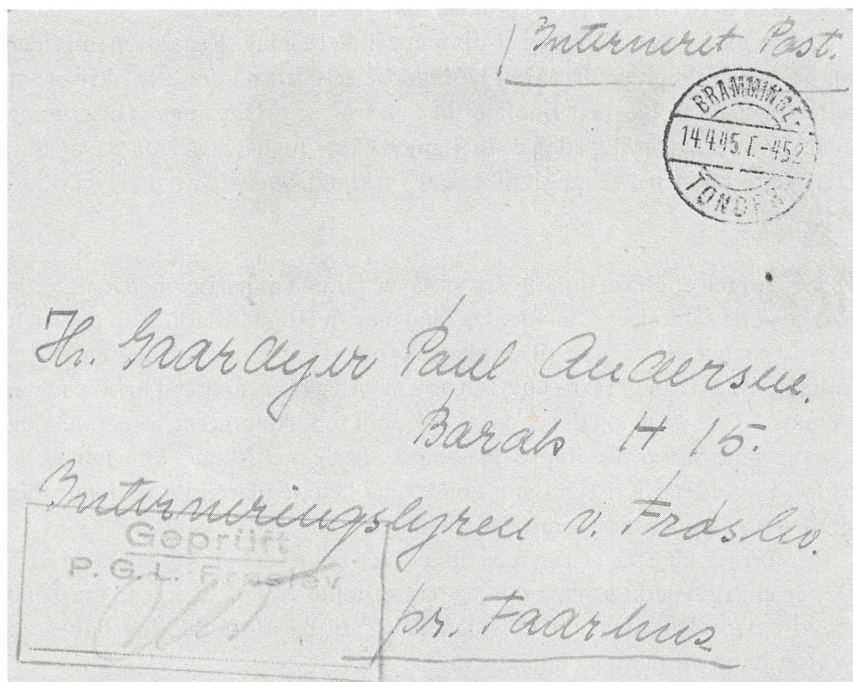 Interneret Post.
BRAMMINGE-
14.4.45 T.-452
TØNDER
Hr. Gaardejer Paul Andersen.
Barak H 15.
Interneringslejren v. Frøslev.
Geprüft
P.G.L. Froslev
pr. Faarhus